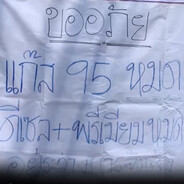 ขออภัย
แก๊ส 95 หมด
ดีเซล+พรีเมียมหมด